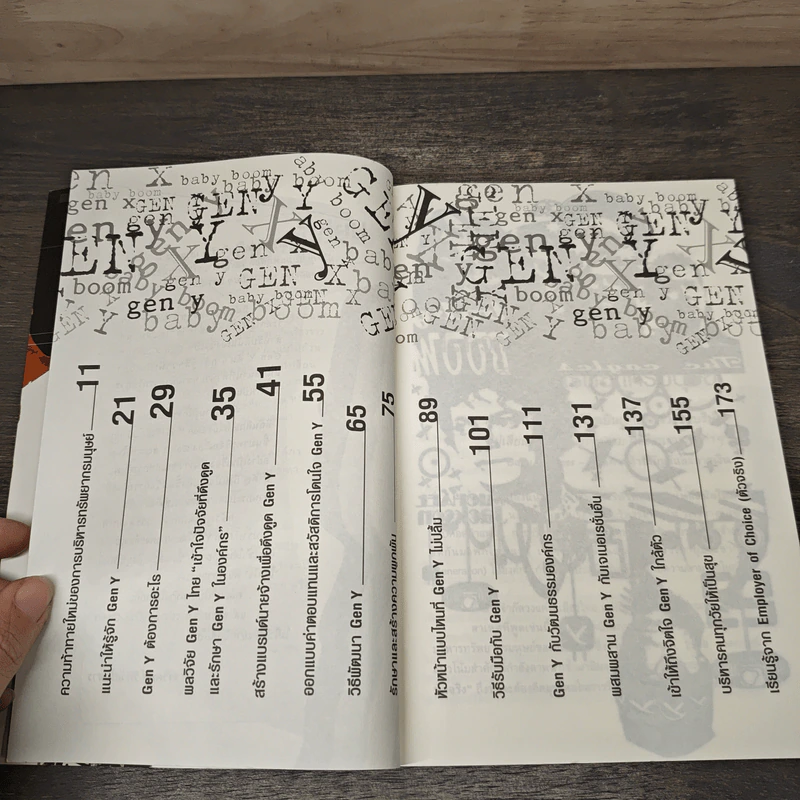 ความท้าทายใหม่ของการบริหารทรัพยากรมนุษย์ 11
แนะนำให้รู้จัก Gen Y 21
Gen Y ต้องการอะไร 29
ผลวิจัย Gen Y ไทย "เข้าใจปัจจัยที่ดึงดูด
และรักษา Gen Y ในองค์กร" 35
สร้างแบรนด์นายจ้างเพื่อดึงดูด Gen Y 41
ออกแบบค่าตอบแทนและสวัสดิการโดนใจ Gen Y 55
วิธีพัฒนา Gen Y 65
รักษาและสร้างความผูกพัน 75
หัวหน้าแบบไหนที่ Gen Y ไม่ปลื้ม 89
วิธีรับมือกับ Gen Y 101
Gen Y กับวัฒนธรรมองค์กร 111
ผสมผสาน Gen Y กับเจเนอเรชั่นอื่น 131
เข้าให้ถึงจิตใจ Gen Y ใกล้ตัว 137
บริหารคนทุกวัยให้เป็นสุข 155
เรียนรู้จาก Employer of Choice (ตัวจริง) 173
gen x baby boom
gen x GEN GEN y Y
gen y GEN X
boom gen y GEN
gen y baby boom
gen x baby boom
gen x GEN GEN y
gen GEN Y gen
boom gen y GEN
gen y baby boom